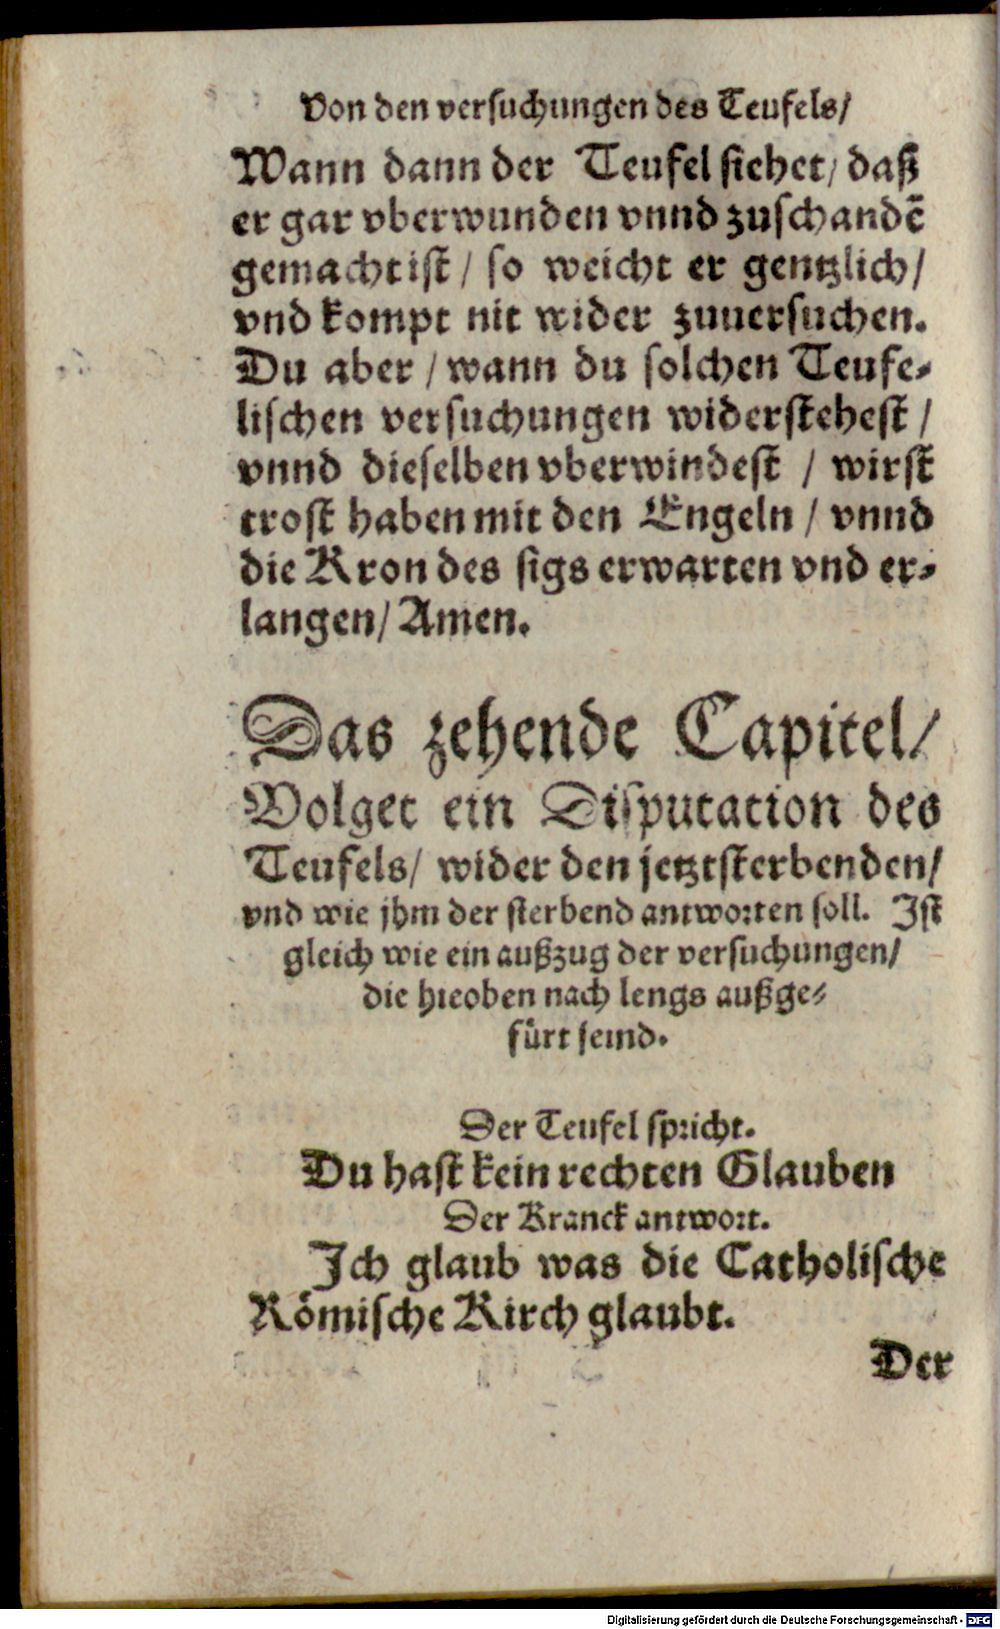 Von den versuchungen des Teufels/
Wann dann der Teufel siehet/ daß
er gar vberwunden vnnd zuschandẽ
gemacht ist / so weicht er gentzlich/
vnd kompt nit wider zuuersuchen.
Du aber / wann du solchen Teufe-
lischen versuchungen widerstehest /
vnnd dieselben vberwindest / wirst
trost haben mit den Engeln / vnnd
die Kron des sigs erwarten vnd er-
langen/ Amen.
Das zehende Capitel/
Volget ein Disputation des
Teufels/ wider den jetztsterbenden/
vnd wie jhm der sterbend antworten soll. Ist
gleich wie ein außzug der versuchungen/
die hieoben nach lengs außge-
fürt seind.
Der Teufel spricht.
Du hast kein rechten Glauben
Der Kranck antwort.
Ich glaub was die Catholische
Römische Kirch glaubt.
Der
Digitalisierung gefördert durch die Deutsche Forschungsgemeinschaft - DFG